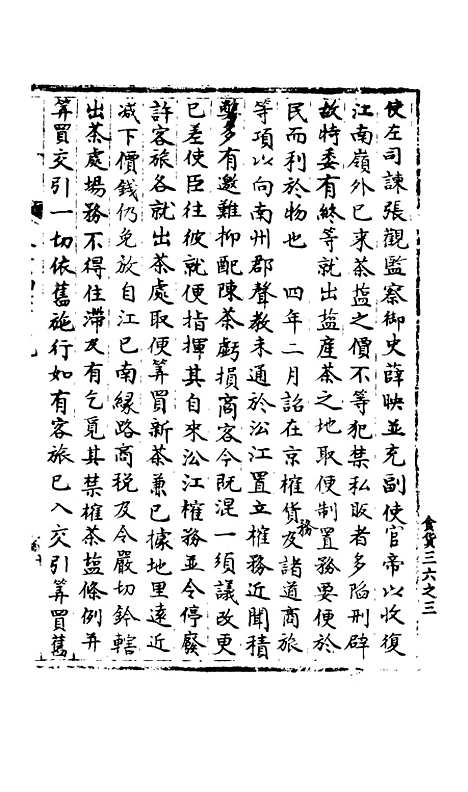 食貨三六之三
使左司諫張觀監察御史薛映並充副使官帝以收復
江南嶺外已來茶塩之價不等犯禁私販者多陷刑辟
故特委有終等就出塩產茶之地取便制置務要便於
民而利於物也 四年二月詔在京榷貨務及諸道商旅
等項以向南州郡聲教未通於沿江置立榷務近聞積
弊多有邀難抑配陳茶虧損商客今既混一須議改更
已差使臣往彼就便指揮其自來沿江榷務並令停廢
許客旅各就出茶處取便筭買新茶兼已據地里遠近
減下價錢仍免放自江已南緣路商稅及令嚴切鈐轄
出茶處場務不得住滯及有乞覓其禁榷茶塩條例并
筭買交引一切依舊施行如有客旅已入交引筭買舊